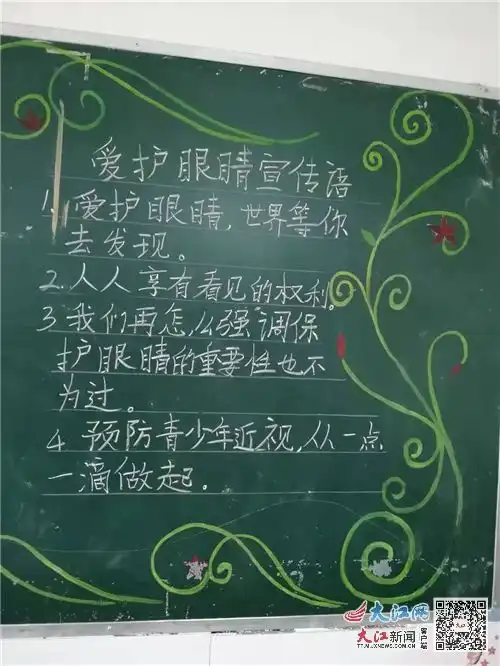 爱护眼睛宣传语
1.爱护眼睛,世界等你
去发现。
2.人人享有看见的权利。
3.我们再怎么强调保
护眼睛的重要性也不
为过。
4.预防青少年近视,从一点
一滴做起。
大江网
大江新闻 客户端
TT.M.JXNEWS.COM.CN
大江新闻